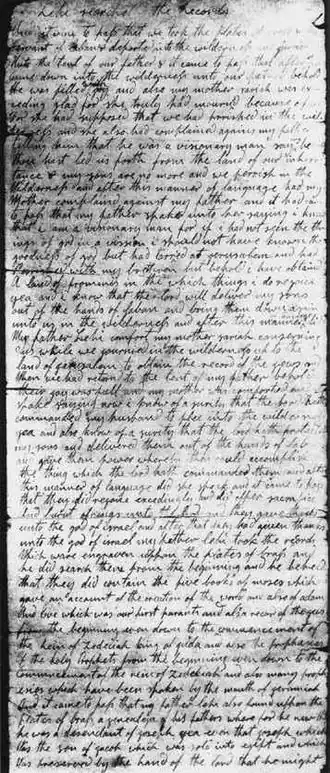 Lehi searches the Records
And it came to pass that we took the plates of brass &
servant of Laban & departed into the wilderness and journied
unto the tent of our father & it came to pass that after
came down into the wilderness unto our father behold
he was filled with joy and also my mother sariah was ex
ceding glad for she truly had mourned because of us
for she had supposed that we had perished in the wild
erness and she also had complained against my father
telling him that he was a visionary man saying behold
thou hast led us forth from the land of our inheri
tance & my sons are no more and we perish in the
wilderness and after this manner of language had my
Mother complained against my father and it had came
to pass that my father spake unto her saying I know
that I am a visionary man for if I had not seen the th
ings of god in a vision I should not have known the
goodness of god but had tarried at jerusalem and had
perrished with my brethren but behold I have obtaine
A land of promise in the which things I do rejoice
yea and I know that the Lord will deliver my sons
out of the hands of Laban and bring them down again
unto us in the wilderness and after this manner of
My father Lehi comfort my mother sariah concerning
us while we journied in the wilderness up to the
land of jerusalem to obtain the record of the jews &
when we had returned to the tent of my father behold
their joy was full and my mother was comforted and
spake saying now I know of a surety that the Lord hath
commanded my husband to flee into the wilderness
yea and I also know of a surety that the Lord hath protected
my sons and delivered them out of the hands of Laban
and gave them power whereby they could accomplish
the thing which the Lord hath commanded them and after
this manner of language did she speak and it came to pass
that they did rejoice excedingly and did offer sacrifice
and burnt offerings unto the Lord and they gave thanks
unto the god of israel and after that they had given thanks
unto the god of israel my father Lehi took the records
Which were engraven uppon the plates of brass and
he did search them from the beginning and he beheld
that they did contain the five books of moses which
gave an account of the creation of the world and also of adam
and Eve which was our first parants and also a record of the jews
from the beginning even down to the commencement of
the reign of zedekiah king of judah and also the prophecies
of the holy prophets from the beginning even down to the
commencement of the reign of zedekiah and also many proph
esies which have been spoken by the mouth of jeremiah
And it came to pass that my father Lehi also found uppon the
plates of brass a genealogy of his fathers wherefore he knew that
he was a desendant of joseph yea even that joseph which
Was the son of jacob which was sold into egypt and which
Was preserved by the hand of the Lord that he might